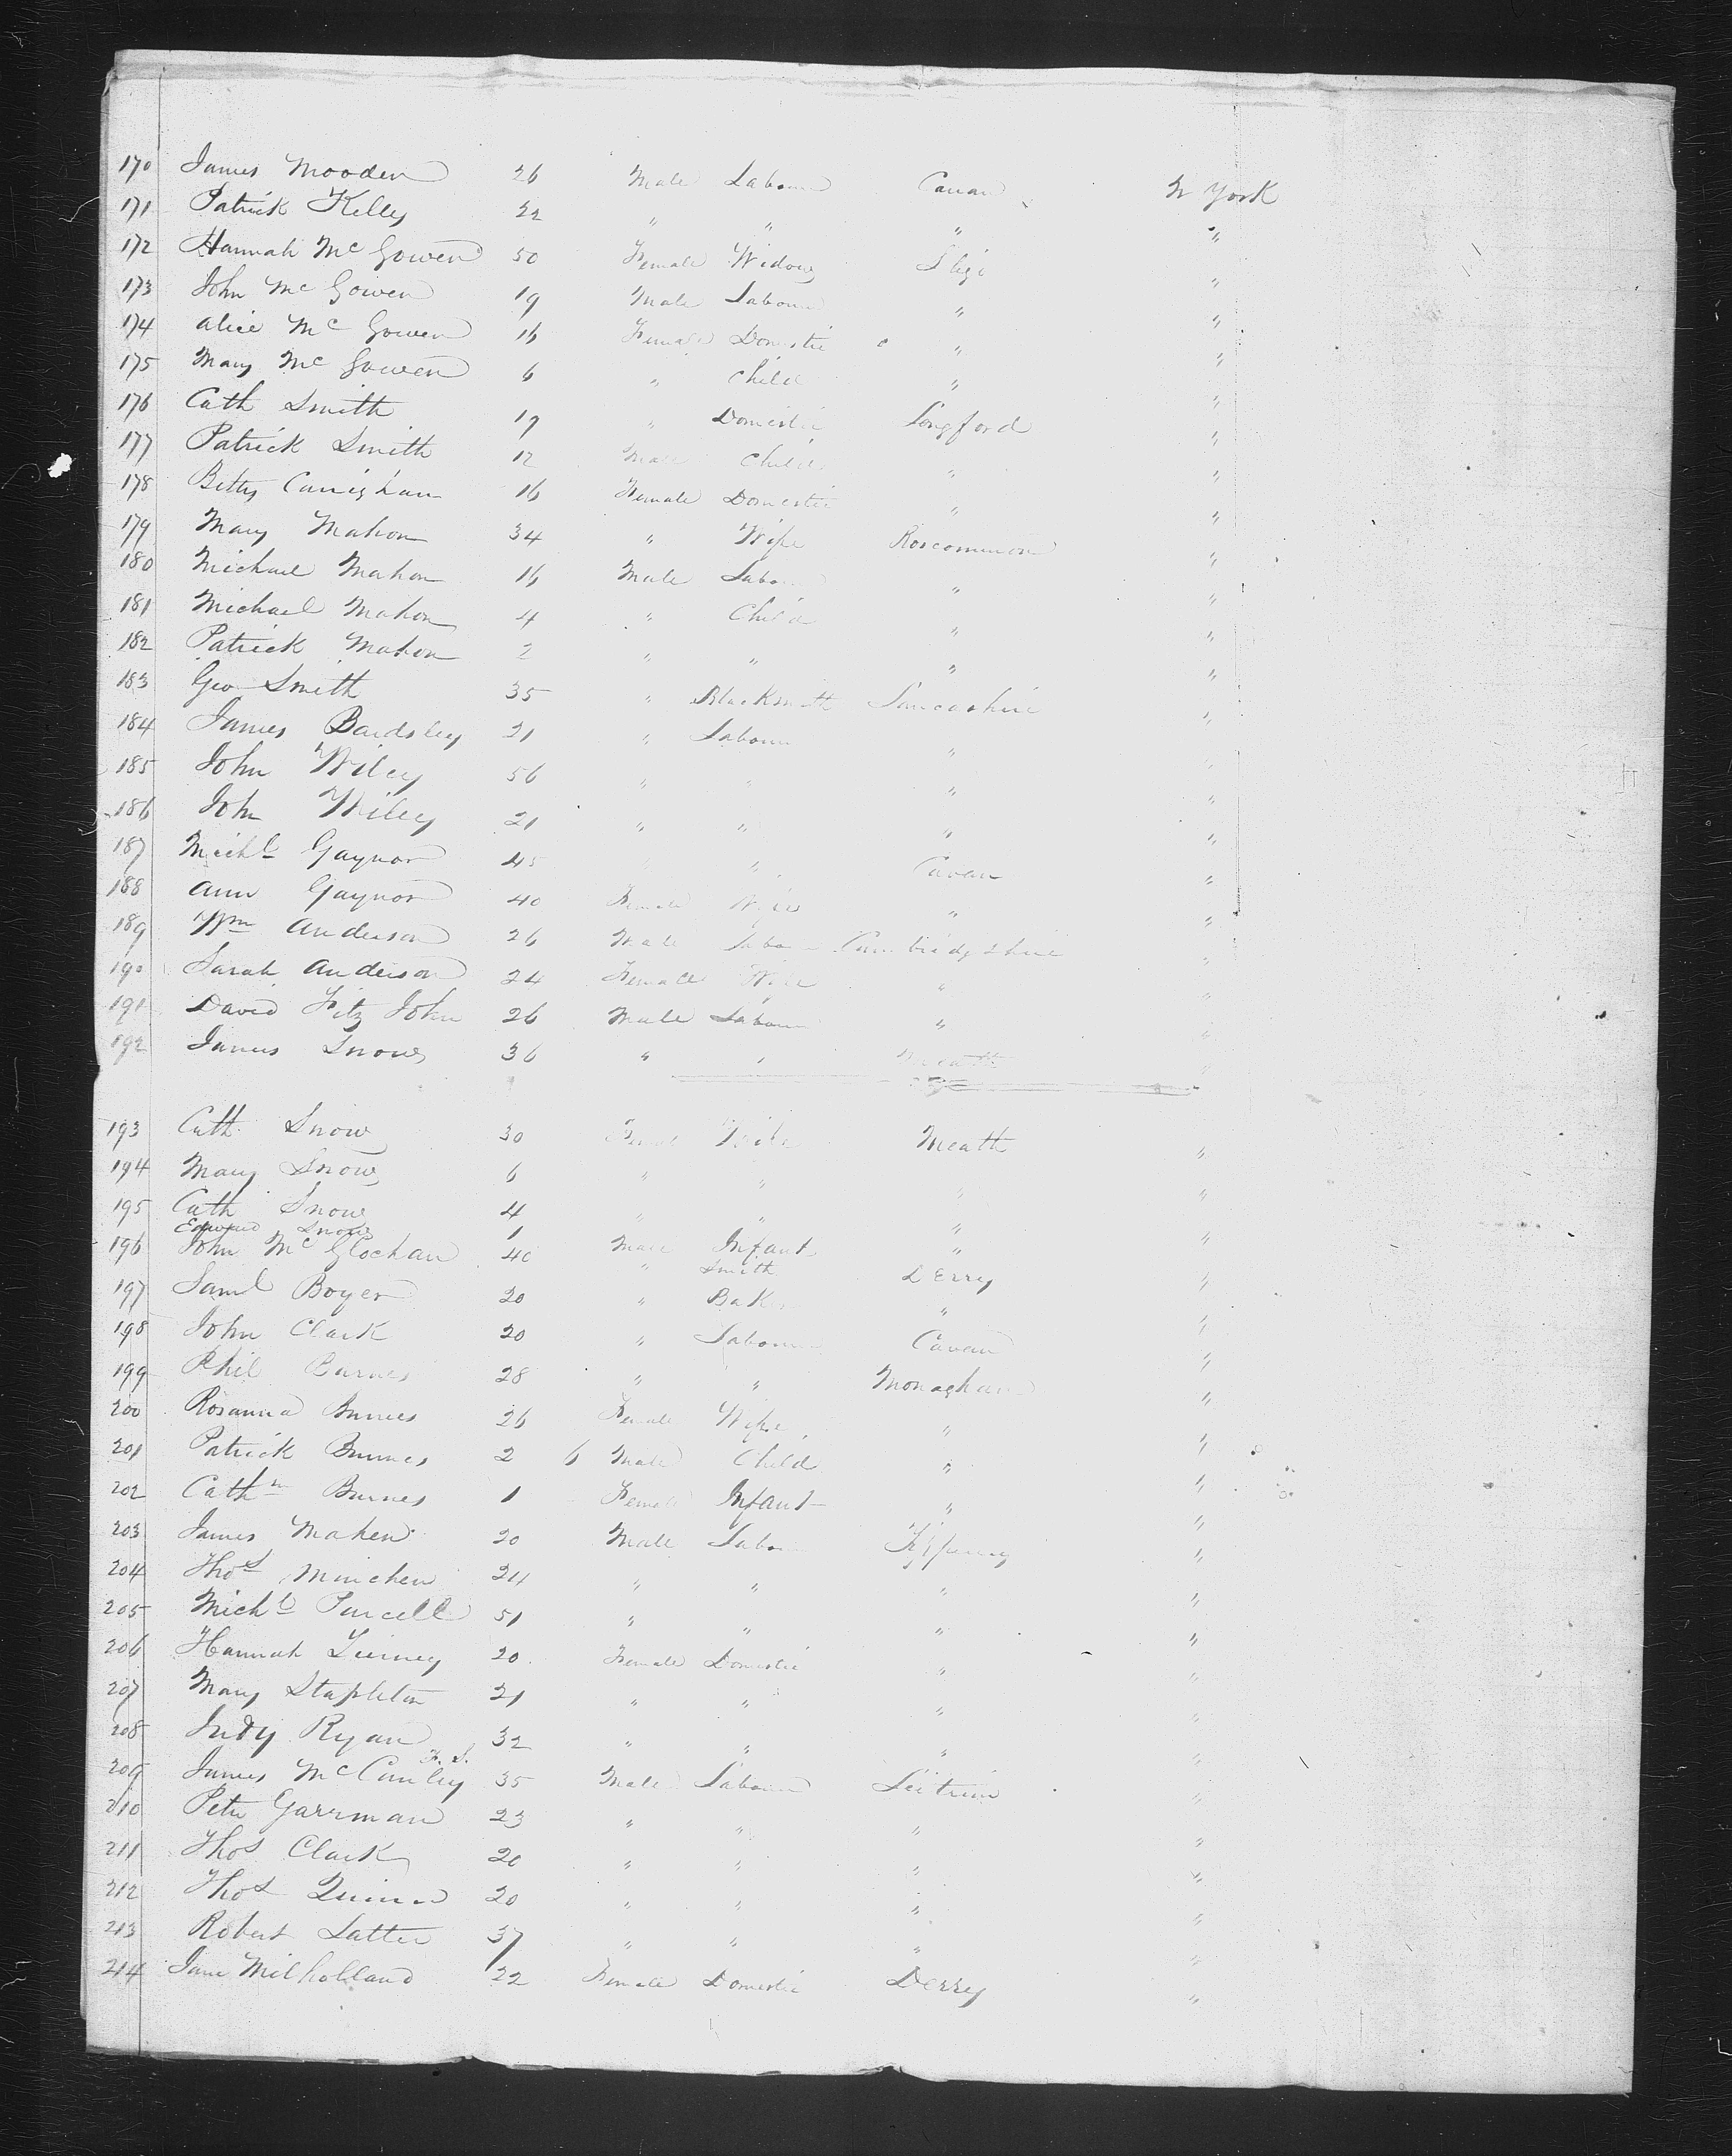 170 James Mooden 26 Male Labour Cavan N York
171 Patrick Kelly 22 " " " "
172 Hannah McGowen 50 Female Widow Sligo "
173 John McGowen 19 Male Labour " "
174 Alice McGowen 16 Female Domestic " "
175 Mary McGowen 6 " Child " "
176 Cath Smith 19 " Domestic Longford "
177 Patrick Smith 12 Male Child " "
178 Betty Carrighan 16 Female Domestic " "
179 Mary Mahon 34 " Wife Roscommon "
180 Michael Mahon 16 Male Labour " "
181 Michael Mahon 4 " Child " "
182 Patrick Mahon 2 " " " "
183 Geo Smith 35 " Blacksmith Lancashire "
184 James Bardsley 21 " Labour " "
185 John Wiley 56 " " " "
186 John Wiley 21 " " " "
187 Michl Gaynor 45 " " Cavan "
188 Ann Gaynor 40 Female Wife " "
189 Wm Anderson 26 Male Labour Cambridgshire "
190 Sarah Anderson 24 Female Wife " "
191 David Fitz John 26 Male Labour " "
192 James Snow 36 " " Meath "
193 Cath Snow 30 Female Wife Meath "
194 Mary Snow 6 " " " "
195 Cath Snow 4 " " " "
Edward Snow 1 Male Infant "
196 John McGlochan 40 " Smith Derry "
197 Saml Boyer 20 " Baker " "
198 John Clark 20 " Labour Cavan "
199 Phil Burnes 28 " " Monaghan "
200 Rosanna Burnes 26 Female Wife " "
201 Patrick Burnes 2 6 Male Child " "
202 Cathn Burnes 1 Female Infant " "
203 James Maher 20 Male Labour Tipperary "
204 Thos Minchen 24 " " " "
205 Michl Purcell 51 " " " "
206 Hannah Tierney 20 Female Domestic " "
207 Mary Stapleton 21 " " " "
208 Judy Ryan 32 " " " "
209 James McCauley 35 Male Labour Leitrim "
210 Peter Garrman 23 " " " "
211 Thos Clark 20 " " " "
212 Thos Quinn 20 " " " "
213 Robert Latter 37 " " " "
214 Jane Milholland 22 Female Domestic Derry "